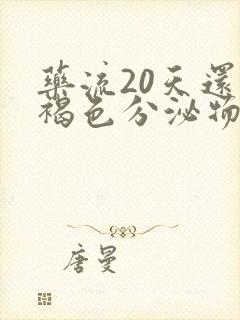 藥流20天還
褐色分泌物
唐曼